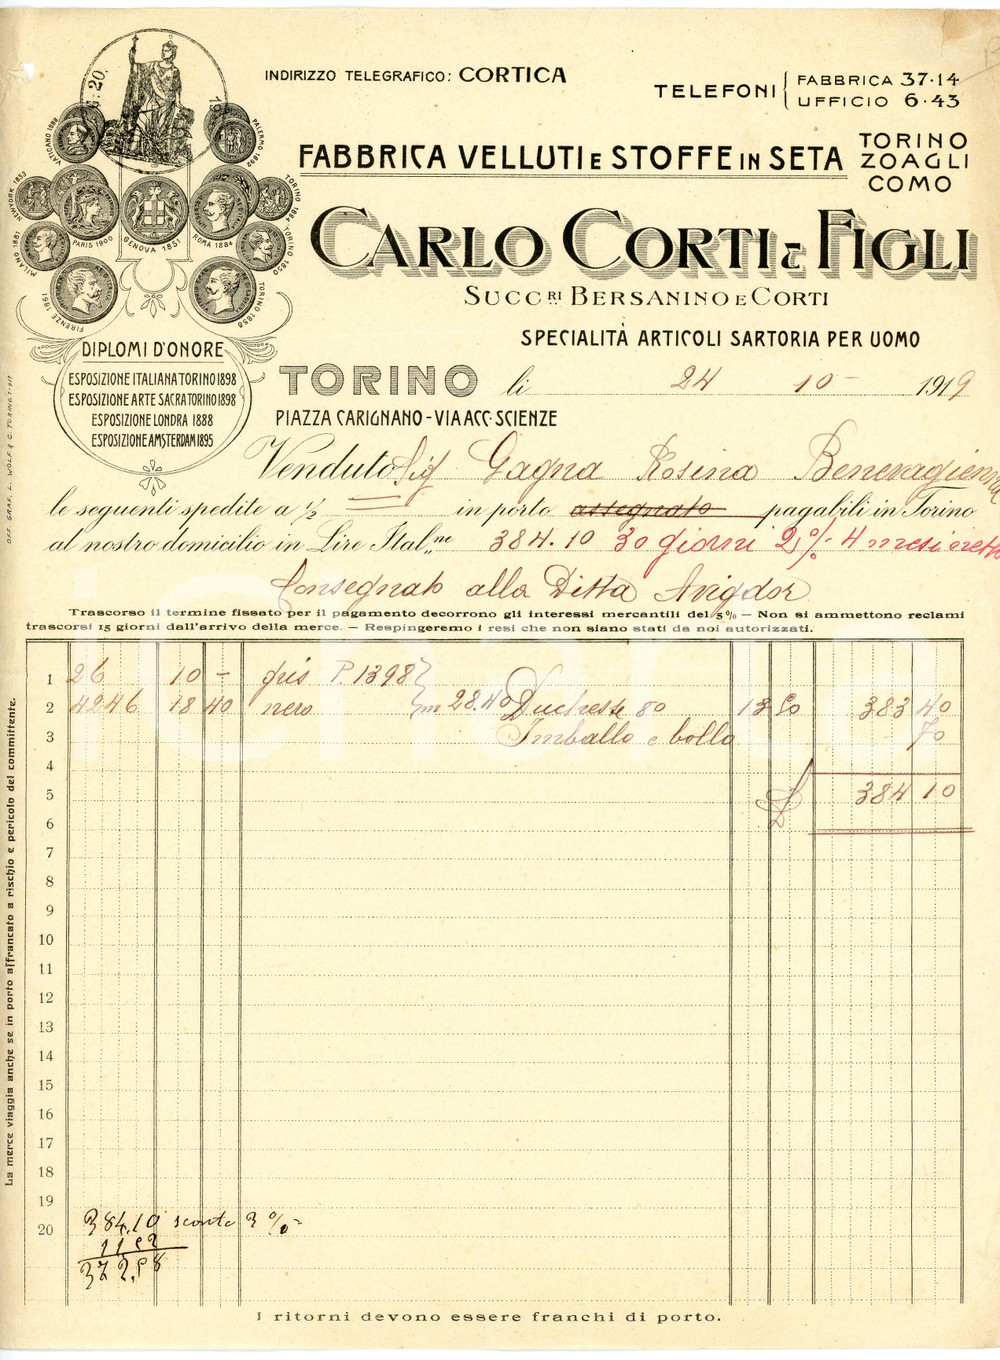 INDIRIZZO TELEGRAFICO: CORTICA
TELEFONI { FABBRICA 37·14
UFFICIO 6·43
FABBRICA VELLUTI E STOFFE IN SETA
TORINO
ZOAGLI
COMO
CARLO CORTI E FIGLI
SUCC.RI BERSANINO E CORTI
SPECIALITÀ ARTICOLI SARTORIA PER UOMO
VATICANO 1888
PALERMO 1892
NEW YORK 1853
TORINO 1884
MILANO 1881
PARIS 1900
GENOVA 1851
ROMA 1884
TORINO 1850
FIRENZE 1861
TORINO 1858
DIPLOMI D'ONORE
ESPOSIZIONE ITALIANA TORINO 1898
ESPOSIZIONE ARTE SACRA TORINO 1898
ESPOSIZIONE LONDRA 1888
ESPOSIZIONE AMSTERDAM 1895
TORINO li 24 10 - 1919
PIAZZA CARIGNANO - VIA ACC. SCIENZE
Venduto Sig Gagna Rosina Benevagienna
le seguenti spedite a 1/2 = in porto assegnato pagabili in Torino
al nostro domicilio in Lire Ital.ne 384.10 30 giorni 2% 4 mesi netto
Consegnato alla Ditta Avigdor
Trascorso il termine fissato per il pagamento decorrono gli interessi mercantili del 5% — Non si ammettono reclami
trascorsi 15 giorni dall'arrivo della merce. — Respingeremo i resi che non siano stati da noi autorizzati.
1 26 10 - gris P. 1398
2 4246 18 40 nero m 28.40 Duchesse 80 13 50 383 40
3 Imballo e bollo 70
4
5 £ 384 10
6
7
8
9
10
11
12
13
14
15
16
17
18
19
20 384,10 sconto 3%
11 52
372,58
I ritorni devono essere franchi di porto.
La merce viaggia anche se in porto affrancato a rischio e pericolo del committente.
OFF. GRAF. L. WOLF & C. TORINO